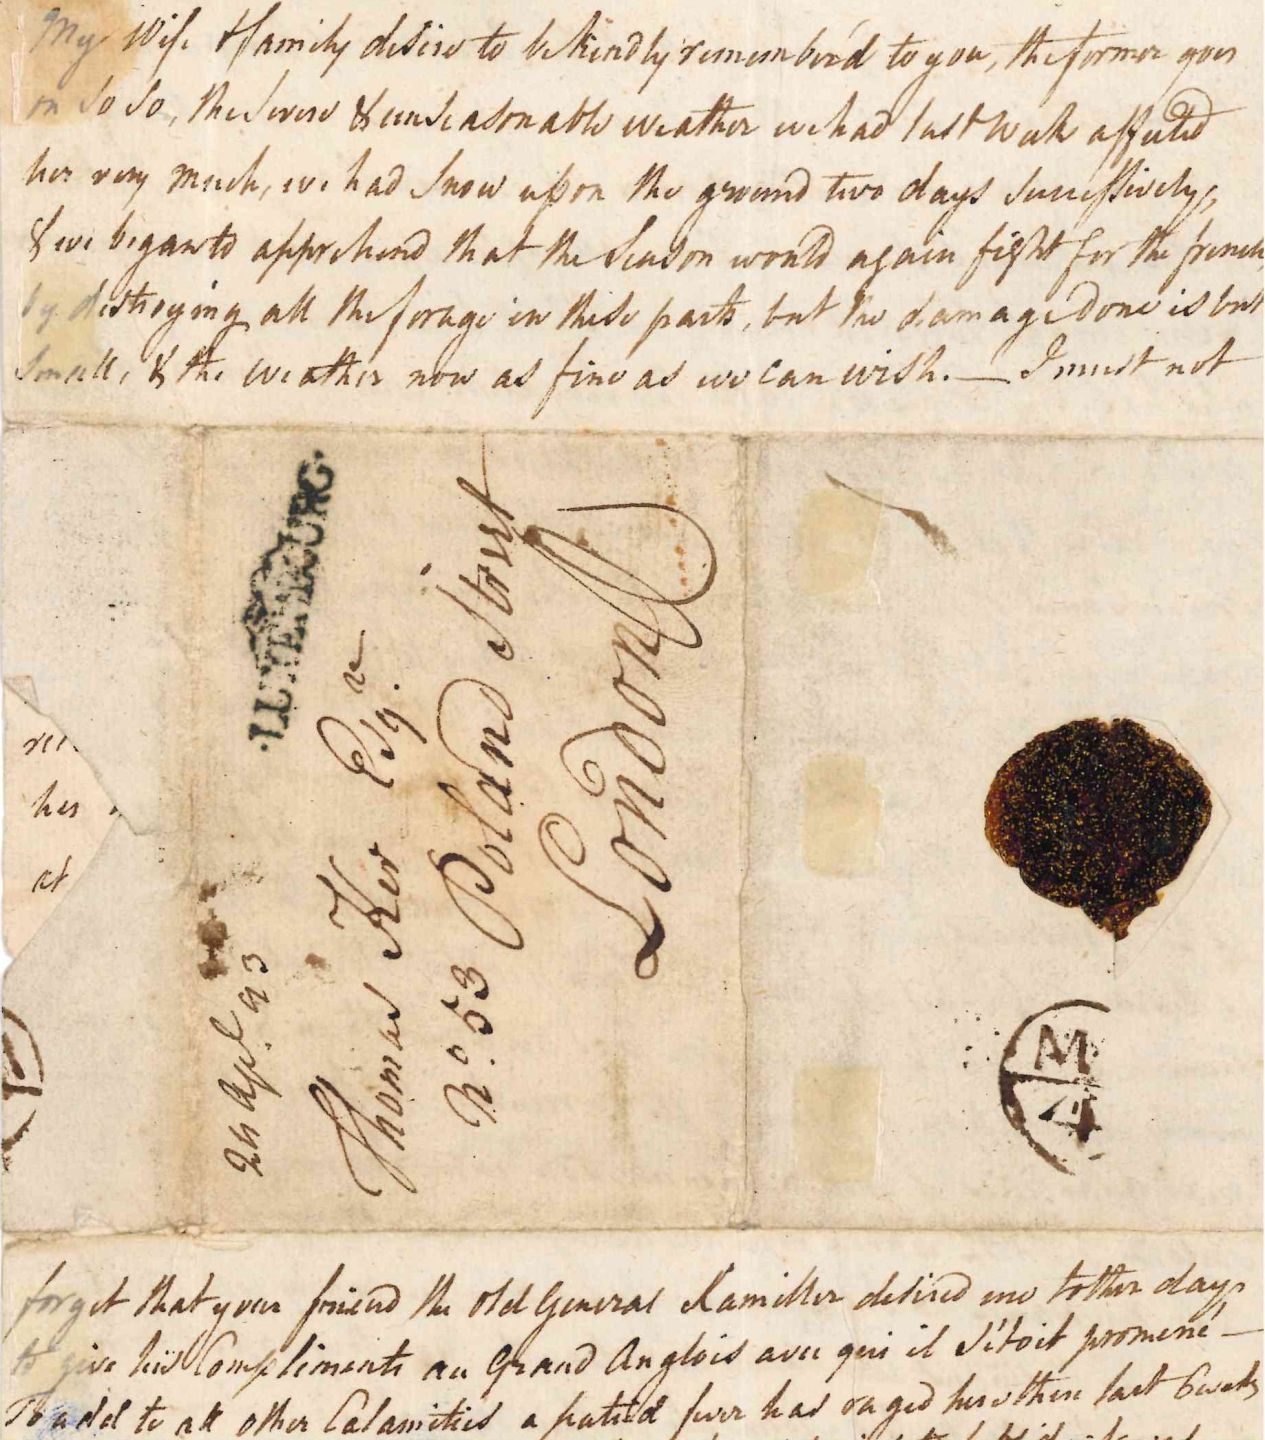 My Wife & family desire to be kindly remember'd to you, the former goes
on so so, the severe & unseasonable weather we had last week affected
her very much, we had Snow upon the ground two days successively,
& we began to apprehend that the Season would again fight for the french,
by destroying all the forage in these parts, but the damage done is but
Small, & the weather now as fine as we can wish. — I must not
LUXEMBOURG.
24 Apl. 93
Thomas Ker Esqr.
No. 53 Poland Street
London
her
at
M
forget that your friend the old General desired me t'other day
to give his Compliments au Grand Anglois avec qui il s'étoit promené —
To add to all other Calamities a putrid fever has raged here these last 6 weeks